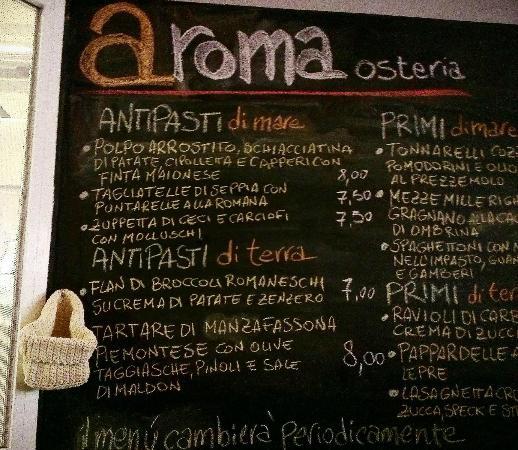 aroma osteria
ANTIPASTI di mare
• POLPO ARROSTITO, SCHIACCIATINA
DI PATATE, CIPOLLETTA E CAPPERI CON
FINTA MAIONESE 8,00
• TAGLIATELLE DI SEPPIA CON
PUNTARELLE ALLA ROMANA 7,50
• ZUPPETTA DI CECI E CARCIOFI 7,50
CON MOLLUSCHI
ANTIPASTI di terra
• FLAN DI BROCCOLI ROMANESCHI
SU CREMA DI PATATE E ZENZERO 7,00
TARTARE DI MANZA FASSONA
PIEMONTESE CON OLIVE
TAGGIASCHE, PINOLI E SALE 8,00
DI MALDON
PRIMI di mare
• TONNARELLI COZZ
POMODORINI E OLIO
AL PREZZEMOLO
• MEZZE MILLE RIGH
GRAGNANO ALLA CA
DI OMBRINA
• SPAGHETTONI CON
NELL'IMPASTO, GUAN
E GAMBERI
PRIMI di ter
• RAVIOLI DI CAR
CREMA DI ZUCCA
• PAPPARDELLE A
LEPRE
• LASAGNETTA CR
ZUCCA SPECK E ST
il menú cambierà periodicamente